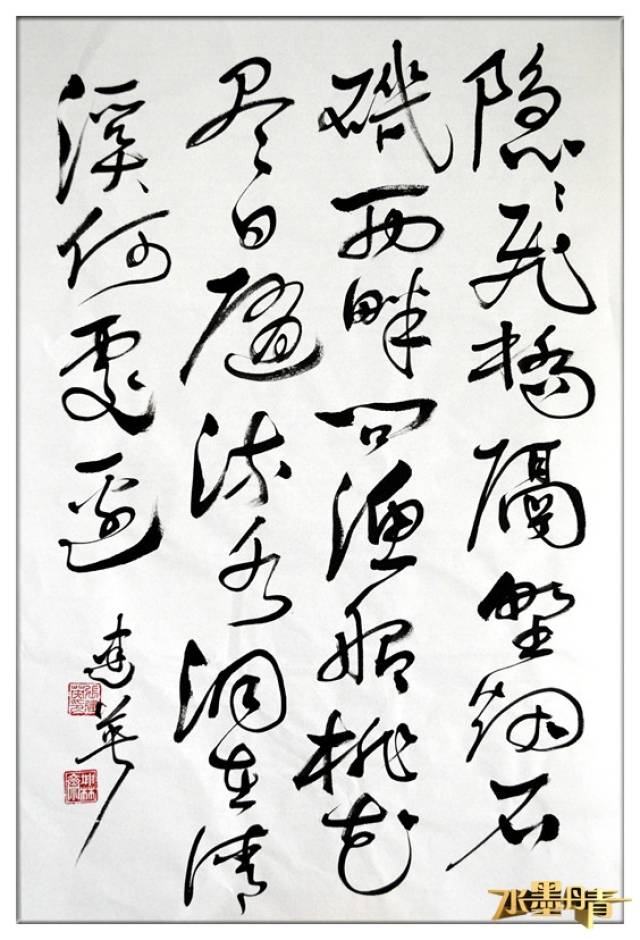 隐隐飞桥隔野烟石
矶西畔问渔船桃花
尽日随流水洞在清
溪何处边
建华
水墨丹青